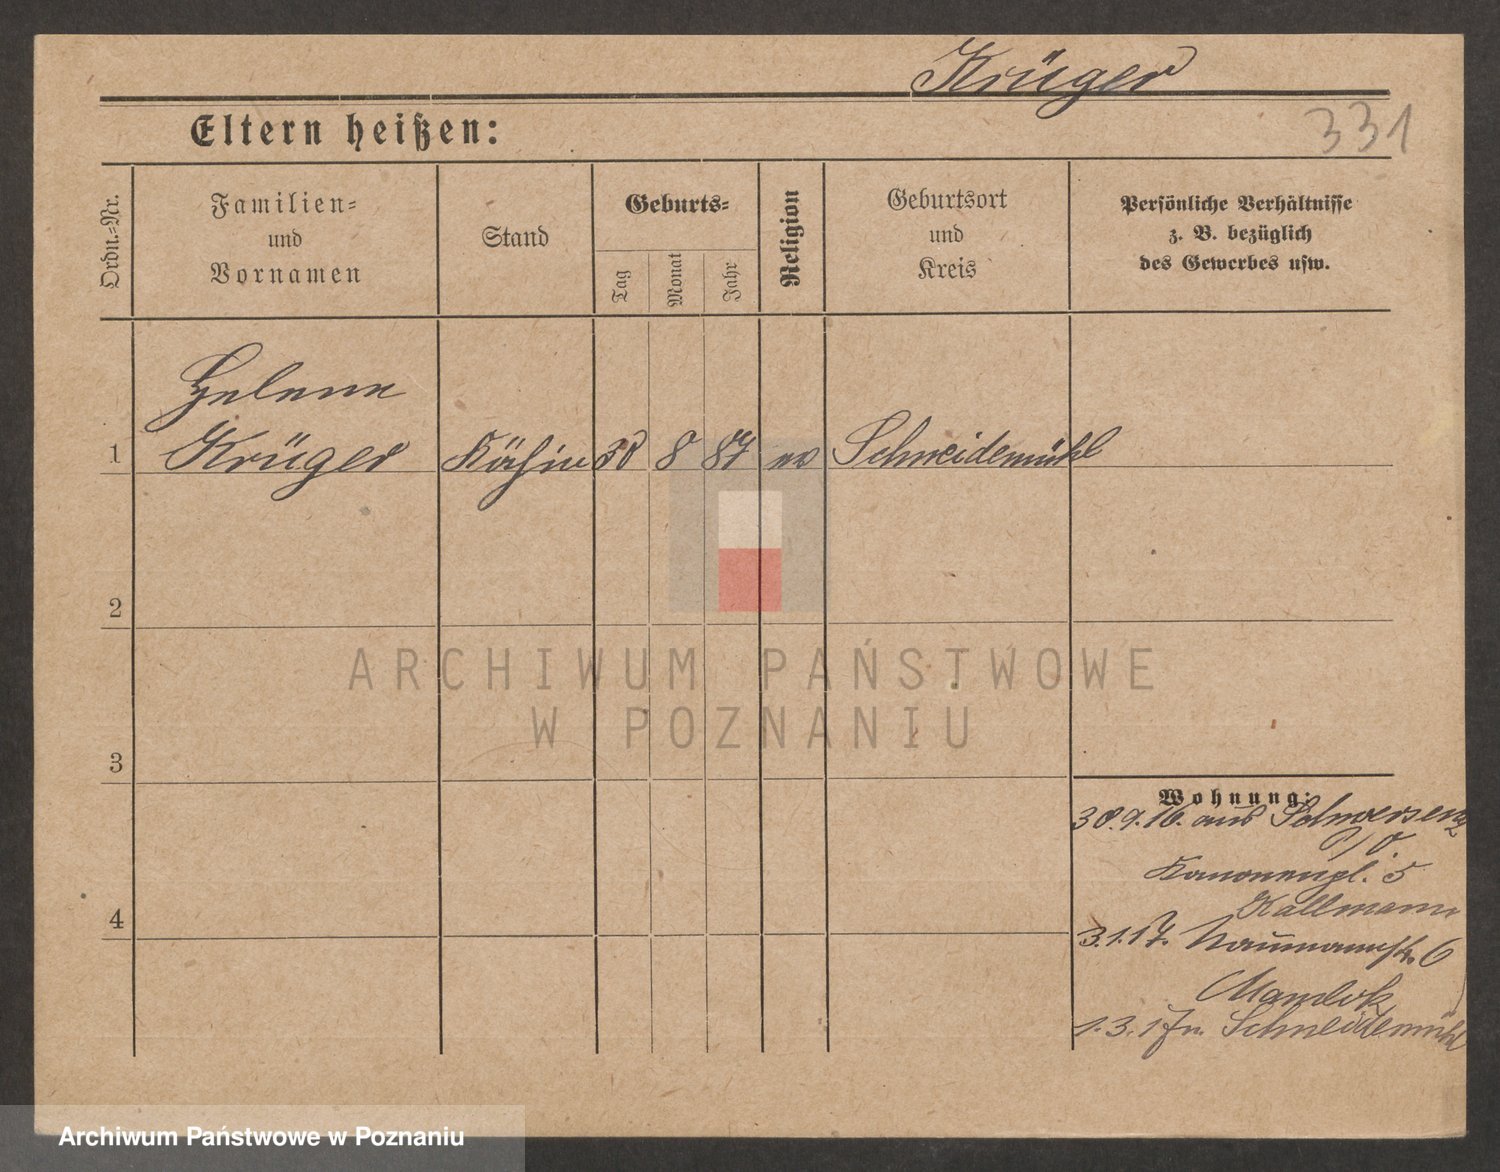 Krüger
331
Eltern heißen:
Ordn.-Nr.
Familien-
und
Vornamen
Stand
Geburts-
Tag
Monat
Jahr
Religion
Geburtsort
und
Kreis
Persönliche Verhältnisse
z. B. bezüglich
des Gewerbes usw.
Helene
1 Krüger Köchin 30 8 87 ev Schneidemühl
2
3
4
ARCHIWUM PAŃSTWOWE
W POZNANIU
Wohnung:
30.9.16. aus Schwersenz
Kanonenpl. 5
Kallmann
3.1.17. Naumannstr. 6
1.3.17 n. Schneidemühl
Archiwum Państwowe w Poznaniu